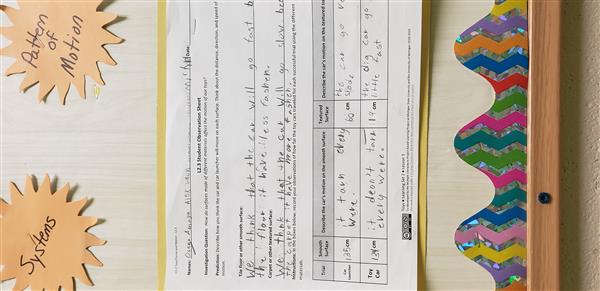 Pattern
of
Motion
Systems
L2.3 Student Observation Sheet
Names:
Date:
Investigation Question: How do surfaces made of different materials affect the motion of our toys?
Prediction: Describe how you think the car and car launcher will move on each surface. Think about the distance, direction, and speed of
motion.
Tile floor or other smooth surface:
We think that the car will go fast b
the floor it have less fashen.
Carpet or other textured surface:
We think that the car will go slow bec
the carpet it have more fashen.
Instructions: In the boxes below, record your observations of how far the toy car traveled for each successful trial using the different
materials.
Trial
Smooth
Surface
Describe the car's motion on the smooth surface
Textured
Surface
Describe the car's motion on the textured
Car
135 cm
it tarn every
Were.
60 cm
the car go
slowe
Toy
Car
cm
it deon't tarn
every were.
19 cm
the dig car go
little fast
Toys • Learning Set 2 • Lesson 3